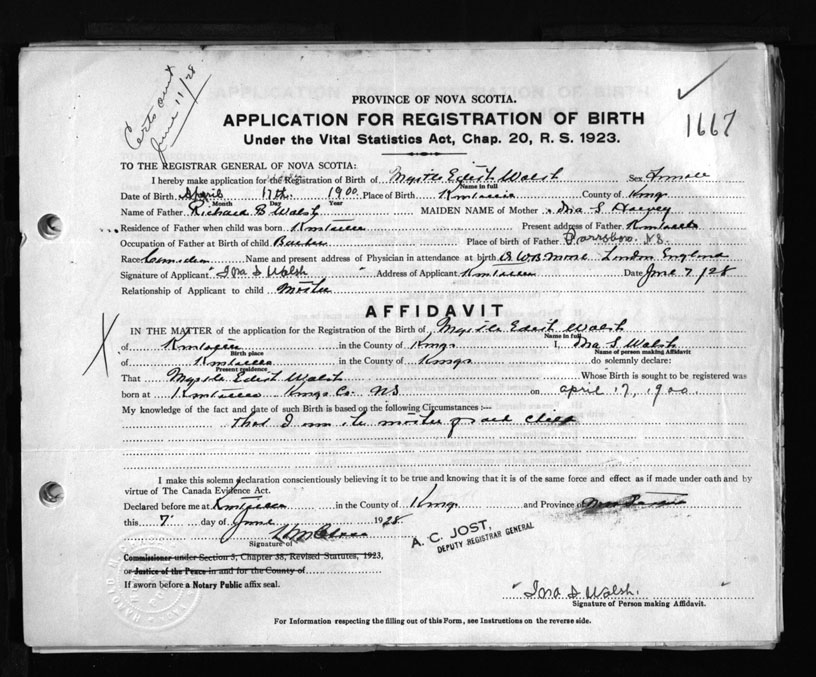 Certs out
June 11/28
1667
PROVINCE OF NOVA SCOTIA.
APPLICATION FOR REGISTRATION OF BIRTH
Under the Vital Statistics Act, Chap. 20, R. S. 1923.
TO THE REGISTRAR GENERAL OF NOVA SCOTIA:
I hereby make application for the Registration of Birth of Myrtle Edith Walsh Sex Female
Name in full
Date of Birth April 17th 1900 Place of Birth Kentville County of Kings
Month Day Year
Name of Father Richard B Walsh MAIDEN NAME of Mother Ina S Harvey
Residence of Father when child was born Kentville Present address of Father Kentville
Occupation of Father at Birth of child Barber Place of birth of Father Parrsboro N.S.
Race Canadian Name and present address of Physician in attendance at birth Dr W B Moore London England
Signature of Applicant "Ina S Walsh" Address of Applicant Kentville Date June 7/28
Relationship of Applicant to child Mother
AFFIDAVIT
IN THE MATTER of the application for the Registration of the Birth of Myrtle Edith Walsh
Name in full
X of Kentville in the County of Kings I, Ina S Walsh
Birth place Name of person making Affidavit
of Kentville in the County of Kings do solemnly declare:
Present residence
That Myrtle Edith Walsh Whose Birth is sought to be registered was
born at Kentville Kings Co. NS on April 17, 1900
My knowledge of the fact and date of such Birth is based on the following Circumstances:—
That I am the mother of said child
I make this solemn declaration conscientiously believing it to be true and knowing that it is of the same force and effect as if made under oath and by
virtue of The Canada Evidence Act.
Declared before me at Kentville in the County of Kings and Province of Nova Scotia
this 7 day of June 1928
Signature of
A. C. JOST,
DEPUTY REGISTRAR GENERAL
Commissioner under Section 3, Chapter 38, Revised Statutes, 1923,
or Justice of the Peace in and for the County of
If sworn before a Notary Public affix seal.
"Ina S Walsh."
Signature of Person making Affidavit.
For Information respecting the filling out of this Form, see Instructions on the reverse side.